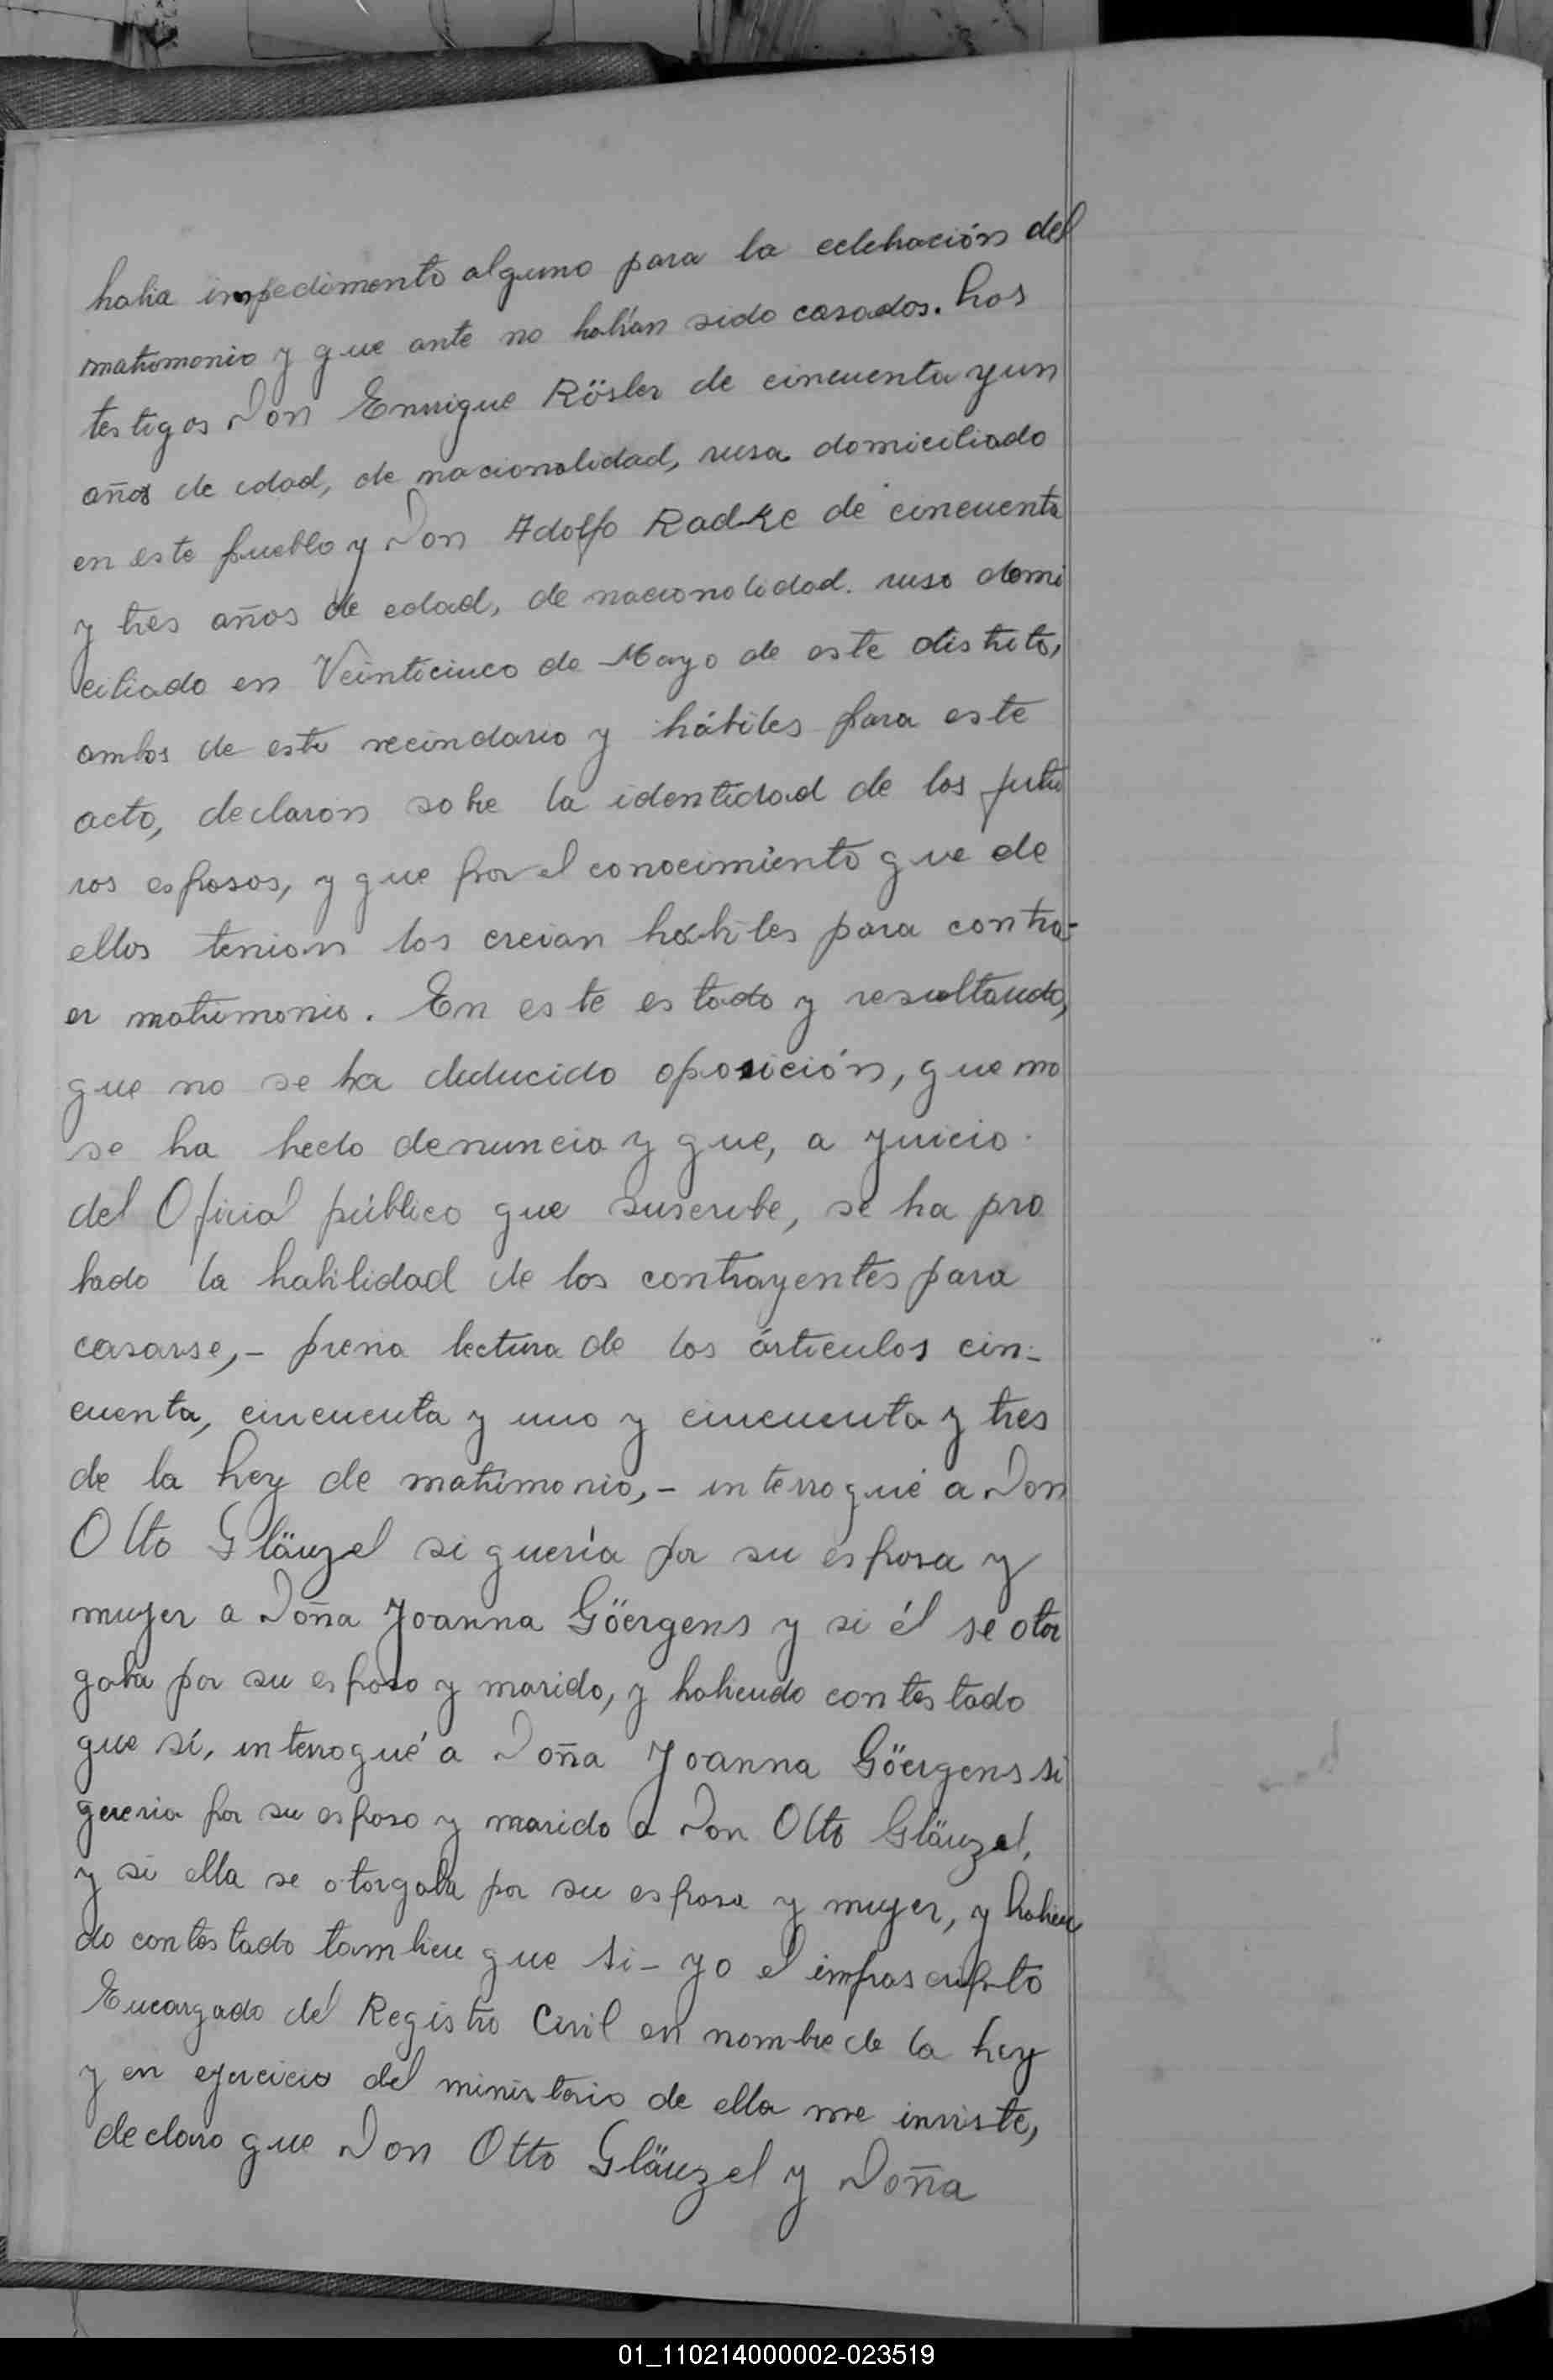 habia impedimento alguno para la celebración del
matrimonio y que ante no habían sido casados. Los
testigos Don Enrrique Rösler de cincuenta y un
años de edad, de nacionalidad, rusa domiciliado
en este pueblo y Don Adolfo Radke de cincuenta
y tres años de edad, de nacionalidad. ruso domi
ciliado en Veinticinco de Mayo de este distrito,
ambos de este vecindario y hábiles para este
acto, declaron sobre la identidad de los futu
ros esposos, y que por el conocimiento que de
ellos tenian los creian habiles para contra-
er matrimonio. En este estado y resultando,
que no se ha deducido oposición, que no
se ha hecho denuncia y que, a juicio
del Oficial público que suscribe, se ha pro
bado la habilidad de los contrayentes para
casarse,- previa lectura de los artículos cin-
cuenta, cincuenta y uno y cincuenta y tres
de la Ley de matrimonio,- interrogué a Don
Otto Gläuzel si quería por su esposa y
mujer a Doña Joanna Göergens y si él se otor
gaba por su esposo y marido, y habiendo contestado
que sí, interrogué a Doña Joanna Göergens si
queria por su esposo y marido a Don Otto Gläuzel,
y si ella se otorgaba por su esposa y mujer, y habien
do contestado tambien que si- yo el infrascripto
Encargado del Registro Civil en nombre de la Ley
y en ejercicio del ministerio de ella me inviste,
declaro que Don Otto Gläuzel y Doña
01_110214000002-023519